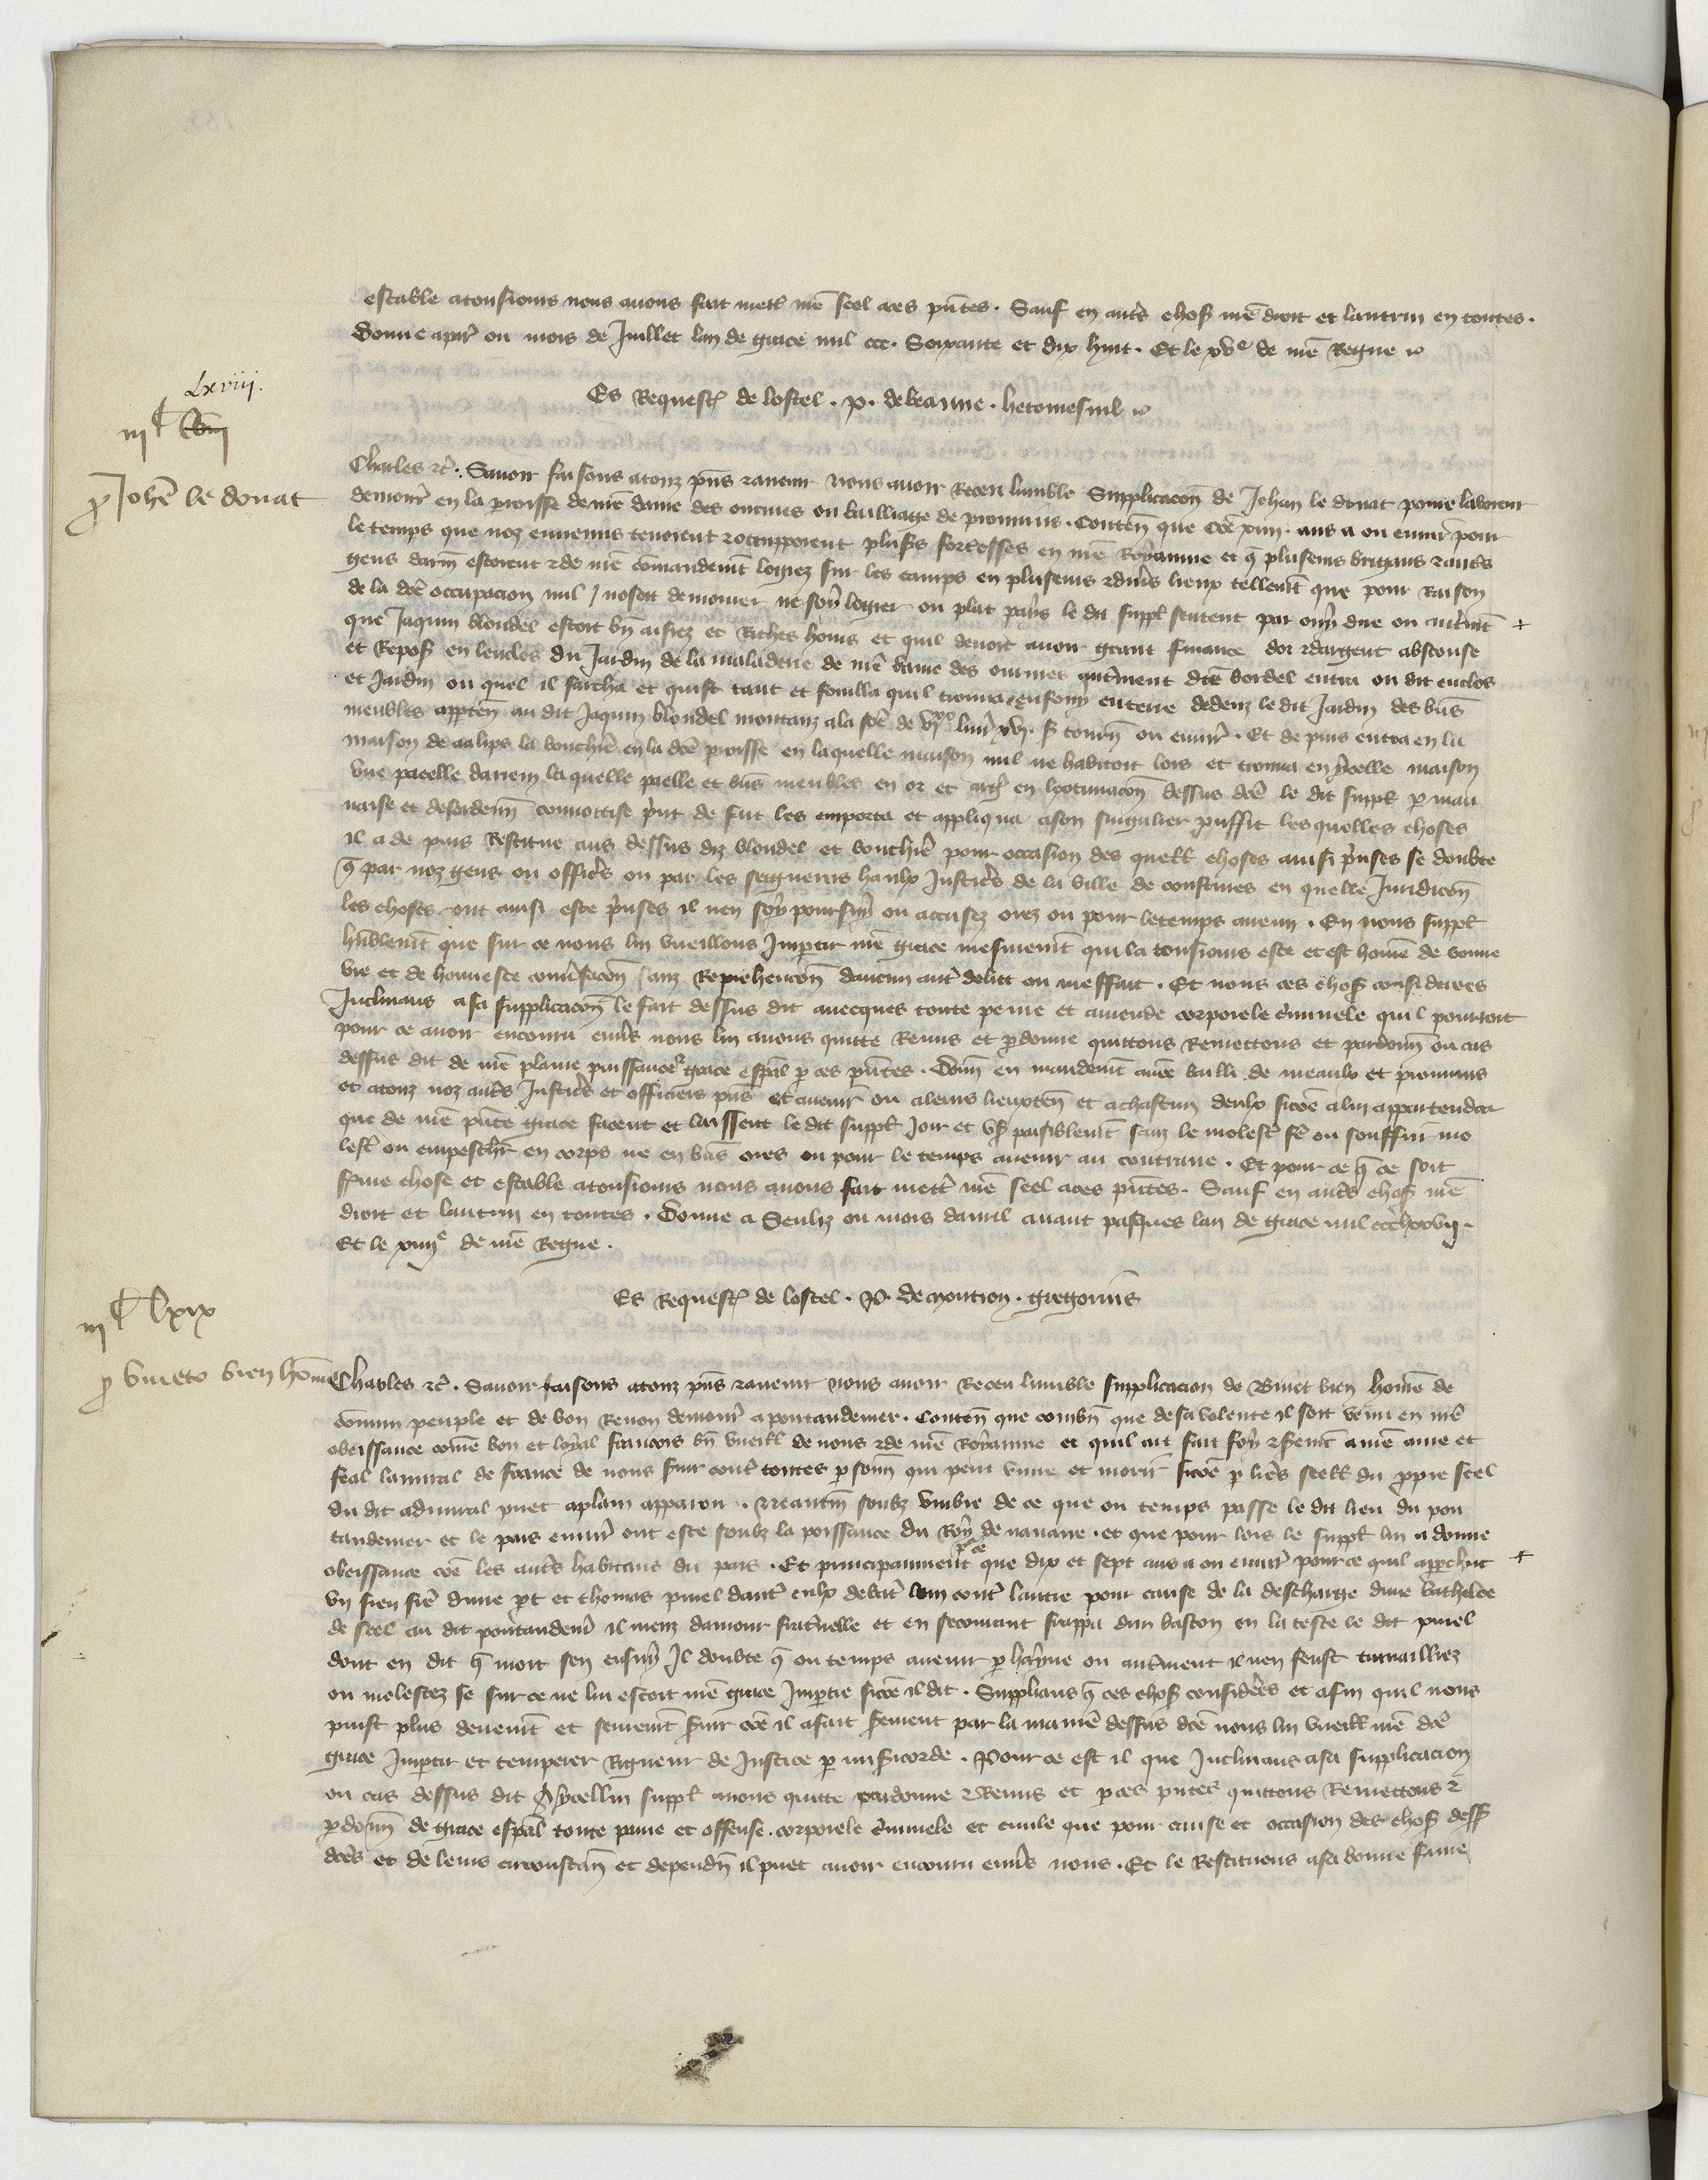 estable atousiours nous avons fait mett' n̄re seel a ces p̄ntes. Sauf en autr̄s choses n̄re droit et lautruy en toutes.
Donne a par' ou mois de Juillet lan de grace mil ccc. Soixante et dix huit. Et le xve de n̄re Regne
Es Requestes de lostel. p. de beaune. hetomesnil
Lxviii.
iijC
p Joh̄e le donat
Charles etc̄. Savoir faisons atouz p̄ns et avenir nous avoir Receu lumble Supplicacōn de Jehan le donat povre laboreur
demour' en la p̄roisse de n̄re dame des ourmes ou bailliage de prouvins. Conten̄ que com̄e xiiij. ans a ou envir̄ pour
le temps que noz ennemis tenoient et occupoient plus̄s forteresses en n̄re Royaume et q̄ plusieurs brigans et autr̄s
gens darm̄ estoient et de n̄re com̄andem̄t logiez sur les camps en plusieurs et div̄s lieux tellem̄t que pour Raison
de la dc̄e occupacion nul nosoit demourer ne soy logier ou plat pays le dit suppl̄ sentent par ouy dire ou autrem̄t +
que Jaquin blondel estoit bn̄ aisiez et Riches homs et quil devoit avoir grant finance dor et dargent absconse
et Repose en lenclos du Jardin de la maladerie de n̄re dame des ourmes autrement dc̄e bordel entra ou dit enclos
et Jardin ou quel il sarcha et quist tant et fouilla quil trouva enfouy en terre dedenz le dit Jardin des biēs
meubles apparten̄ au dit Jaquin blondel montanz a la som̄e de livr' xvj. s. tourn̄ ou envir̄. Et depuis entra en la
maison de aalips la bouchier̄ en la dc̄e p̄roisse en laquelle maison nul ne habitoit lors et trouva en ycelle maison
une paelle darrein laquelle paelle et biēs meubles en or et arḡ en lextimacōn dessus dc̄e le dit suppl̄ p̱ mau
vaise et desorden̄ convoitise p̄rint de fait les emporta et appliqua a son singulier prouffit lesquelles choses
il a depuis Restitue aus dessus diz blondel et bouchier̄ pour occasion des quell̄ choses ainsi p̄rinses se doubte
q̄ par noz gens ou officr̄s ou par les seigneurs haulx Justicr̄s de la ville de coustures en quelle Juridicōn
les choses ont ainsi este p̄rinses il nen soy poursuy ou accusez ores ou pour le temps avenir. En nous suppl̄
humblem̄t que sur ce nous lui vueillons Impartir n̄re grace mesmem̄t qui la tousiours este et est hom̄e de bonne
vie et de honneste conv̄sacōn sanz Reprehencōn daucun autr̄ delict ou meffait. Et nous ces choses considerees
Inclinans a sa supplicacōn le fait dessus dit avecques toute peine et amende corporele crimnele quil pourroit
pour ce avoir encouru env̄s nous lui avons quitte Remis et p̱donne quittons Remettons et pardonn̄ ou cas
dessus dit de n̄re plaine puissance et grace esp̄al p̱ ces p̄ntes. Donn̄ en mandem̄t aus bailli de meaulx et prouvins
et atouz noz autr̄s Justicr̄s et officiers p̄ns et avenir ou a leurs lieuxten̄ et a chascun deulx sicom̄e alui appartendra
que de n̄re p̄nte grace facent et laissent le dit suppl̄ Joir et us̄er paisiblem̄t sanz le molest̄ fē ou souffrir mo
lest̄ ou empesch̄r en corps ne en biēs ores ou pour le temps avenir au contraire. Et pour ce q̄ ce soit
ferme chose et estable atousiours nous avons fait mettr̄ n̄re seel aces p̄ntes. Sauf en autr̄s choses n̄re
droit et lautruy en toutes. Donne a Senliz ou mois davril avant pasques lan de grace mil ccclxxvij.
Et le xiiije de n̄re Regne.
Es Requestes de lostel. P. de montion. gregorius
iijC lxix
p bineto bien hom̄e
Charles etc̄. Savoir faisons atouz p̄ns et avenir nous avoir Receu lumble supplicacion de Binet bien hom̄e de
com̄un peuple et de bon Renon demour̄ a pontaudemer. Conten̄ que combn̄ que de sa volente il soit venu en n̄re
obeissance com̄e bon et loyal francois bn̄ vueill̄ de nous et de n̄re Royaume et quil ait fait foy et s̄erem̄t a n̄re ame et
feal lamiral de france de nous s̄ervir contr̄ toutes p̱sonn̄ qui peut vivre et morir sicom̄e p̱ lr̄es seell̄ du p̱pre seel
du dit admiral puet aplain apparoir. Neantm̄ soubz umbre de ce que ou temps passe le dit lieu du pon
taudemer et le pais envir̄ ont este soubz la poissance du Roy de navarre. et que pour lors le suppl̄ lui a donne
obeissance com̄e les autr̄s habitans du pais. Et principaument p̱ ce que dix et sept ans a ou envir̄ pource quil app̱chut +
un sien frē dune p̱t et thomas pinel dautr̄ eulx debatr̄ lun contr̄ lautre pour cause de la descharge dune bathelee
de seel au dit pontaudem̄ il meuz damour frat̄nelle et en secourant frappa dun baston en la teste le dit pinel
dont en dit q̄ mort sen ensuy Il doubte q̄ ou temps avenir p̱ hayne ou autrement il nen feust travailliez
ou molestez se sur ce ne lui estoit n̄re grace Impartie sicom̄e il dit. Supplians q̄ ces choses considerees et afin quil nous
puist plus deuem̄t et seurem̄t s̄ervir com̄e il a fait s̄erement par la manier̄ dessus dc̄e nous lui vueill̄ n̄re dc̄e
grace Impartir et temperer Rigueur de Justice p̱ mis̄ericorde. Pour ce est il que Inclinans a sa supplicacion
ou cas dessus dit A ycellui suppl̄ avons quitte pardonne et Remis et p̱ ces p̄ntes quittons Remettons et
p̱donn̄ de grace esp̄al toute paine et offense. corporele crimnele et civile que pour cause et occasion des choses dess̄
dc̄es et de leurs circonstan̄ et dependn̄ il puet avoir encouru env̄s nous. Et le Restituons a sa bonne fame